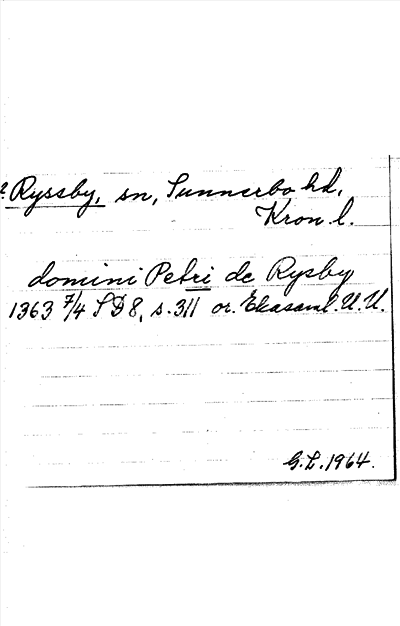 Ryssby, sn, Sunnerbo hd,
Kron. l.
domini Petri de Rysby
1363 7/4 SD 8, s. 311 or. Ekasaml. U.U.
G.L. 1964.